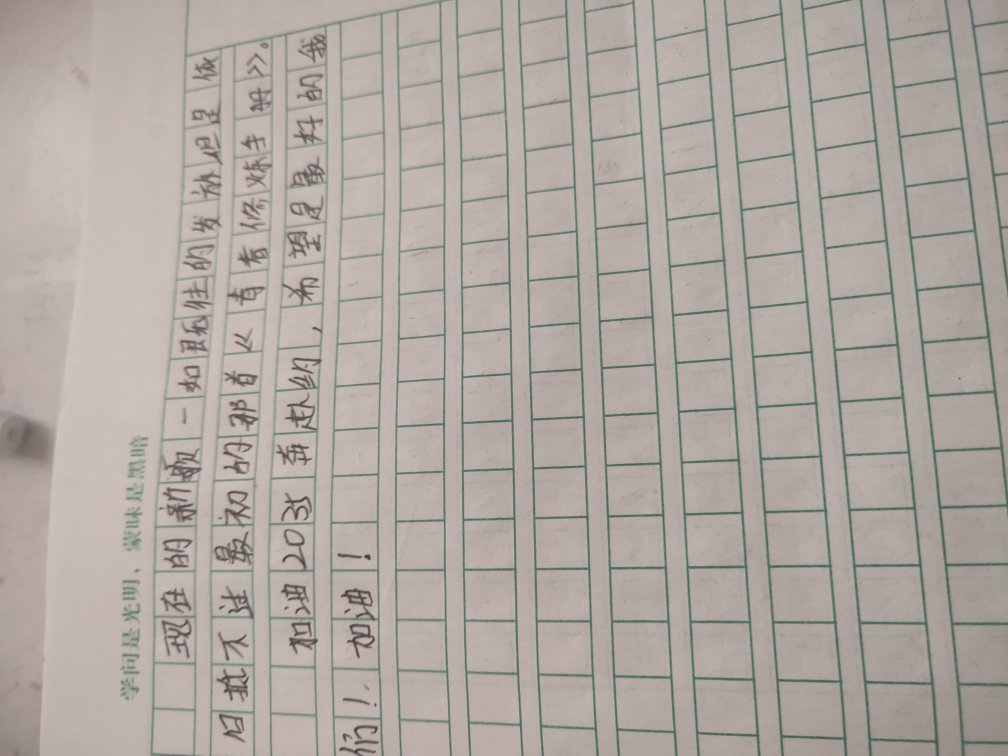 学问是光明，蒙昧是黑暗
现在的新歌一如既往的发放但是依
旧抵不过最初的那首《青春修炼手册》。
加油2035奔赴约，希望是最好的我
们！加油！